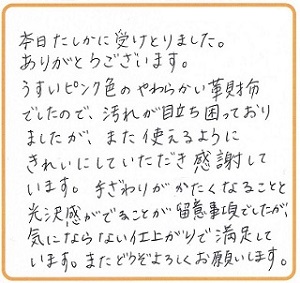 本日たしかに受けとりました。
ありがとうございます。
うすいピンク色のやわらかい革財布
でしたので、汚れが目立ち困っており
ましたが、また使えるように
きれいにしていただき感謝して
います。手ざわりがかたくなることと
光沢感がでることが留意事項でしたが、
気にならない仕上がりで満足して
います。またどうぞよろしくお願いします。